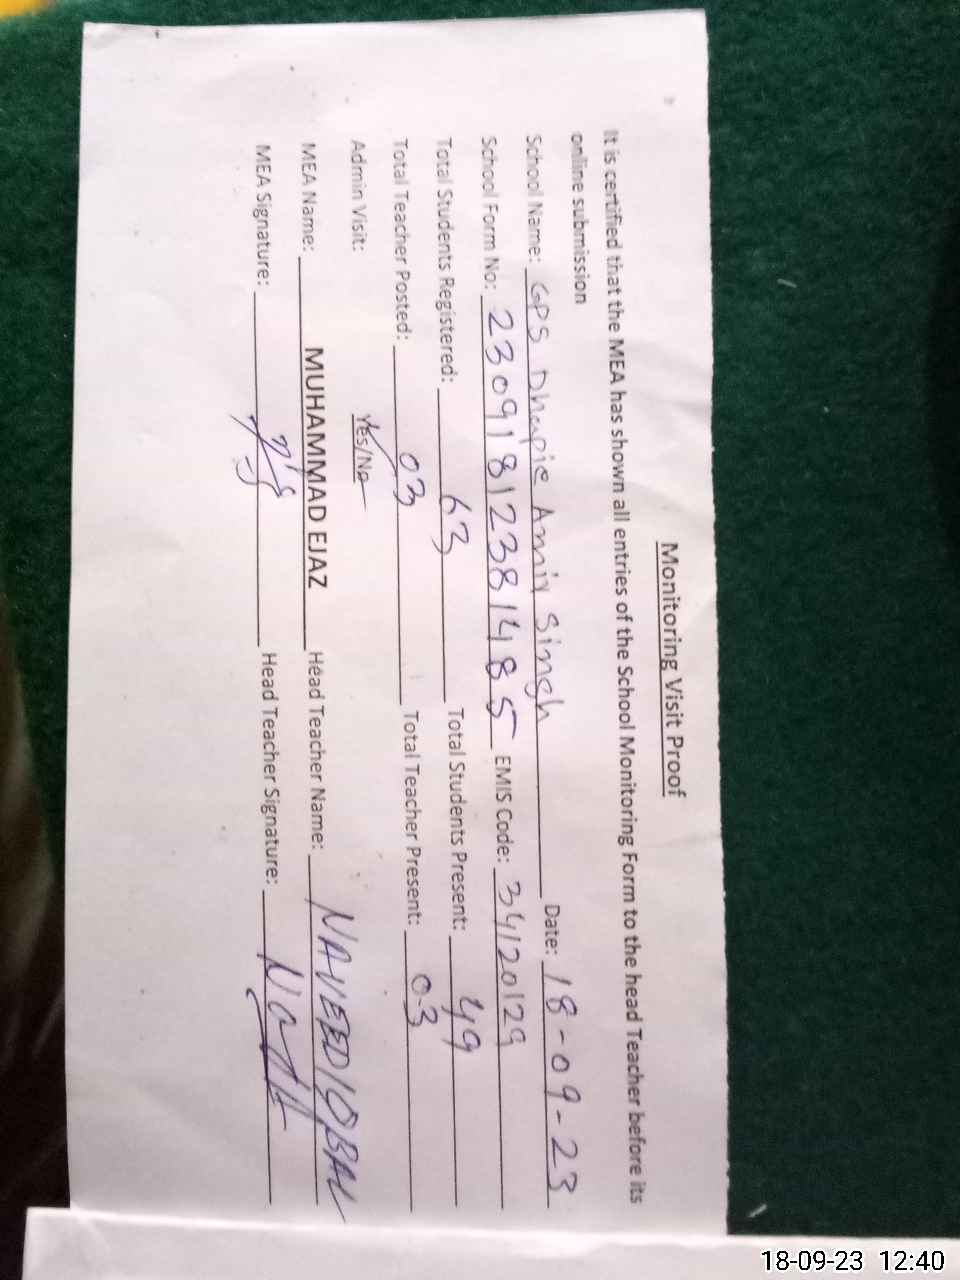 Monitoring Visit Proof
It is certified that the MEA has shown all entries of the School Monitoring Form to the head Teacher before its
online submission
School Name: GPS Dhapie Amir Singh Date: 18-09-23
School Form No: 23091812381485 EMIS Code: 34120129
Total Students Registered: 63 Total Students Present: 49
Total Teacher Posted: 03 Total Teacher Present: 03
Admin Visit: Yes/No
MEA Name: MUHAMMAD EJAZ Head Teacher Name: NAVEED IQBAL
MEA Signature: Head Teacher Signature:
18-09-23 12:40